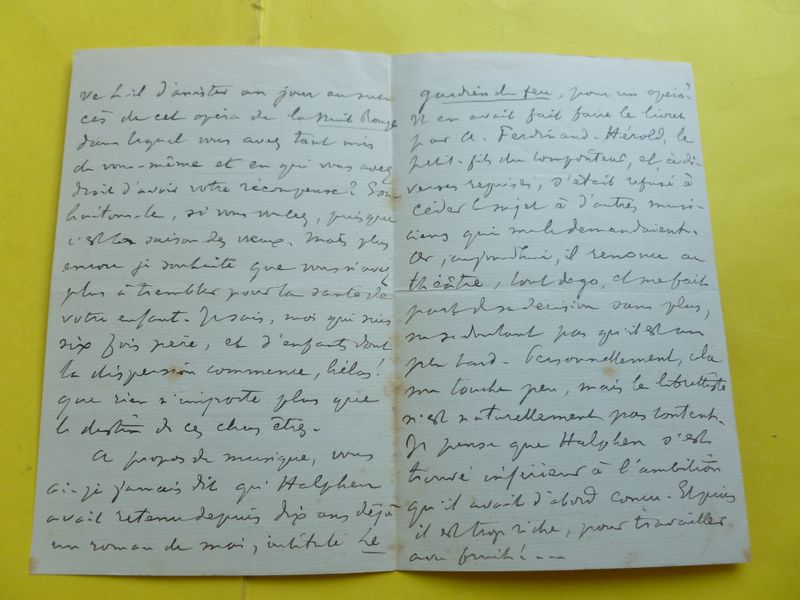 d'assister un jour au suc-
cès de cet opéra de la Nuit Rouge
dans lequel vous avez tant mis
de vous-même et en qui vous avez
droit d'avoir votre récompense? Sou-
haitons-le, si vous voulez, puisque
c'est la saison des vœux. Mais plus
encore je souhaite que vous n'ayez
plus à trembler pour la santé de
votre enfant. Je sais, moi qui suis
six fois père, et d'enfants dont
la dispersion commence, hélas!
que rien n'importe plus que
le destin de ces chers êtres.
A propos de musique, vous
ai-je jamais dit qu'Halphen
avait retenu depuis dix ans déjà
un roman de moi, intitulé Le
gardien du feu, pour un opéra?
Il en avait fait faire le livret
par A. Ferdinand-Hérold, le
petit-fils du compositeur, et, à di-
verses reprises, s'était refusé à
céder le sujet à d'autres musi-
ciens qui me le demandaient.
Or, aujourd'hui, il renonce au
théâtre, tout de go, et me fait
part de sa décision sans plus,
ne se doutant pas qu'il est un
peu tard. Personnellement, cela
me touche peu, mais le librettiste
n'est naturellement pas content.
Je pense que Halphen s'est
trouvé inférieur à l'ambition
qu'il avait d'abord conçue. Et puis
il est trop riche, pour travailler
avec fruit!...